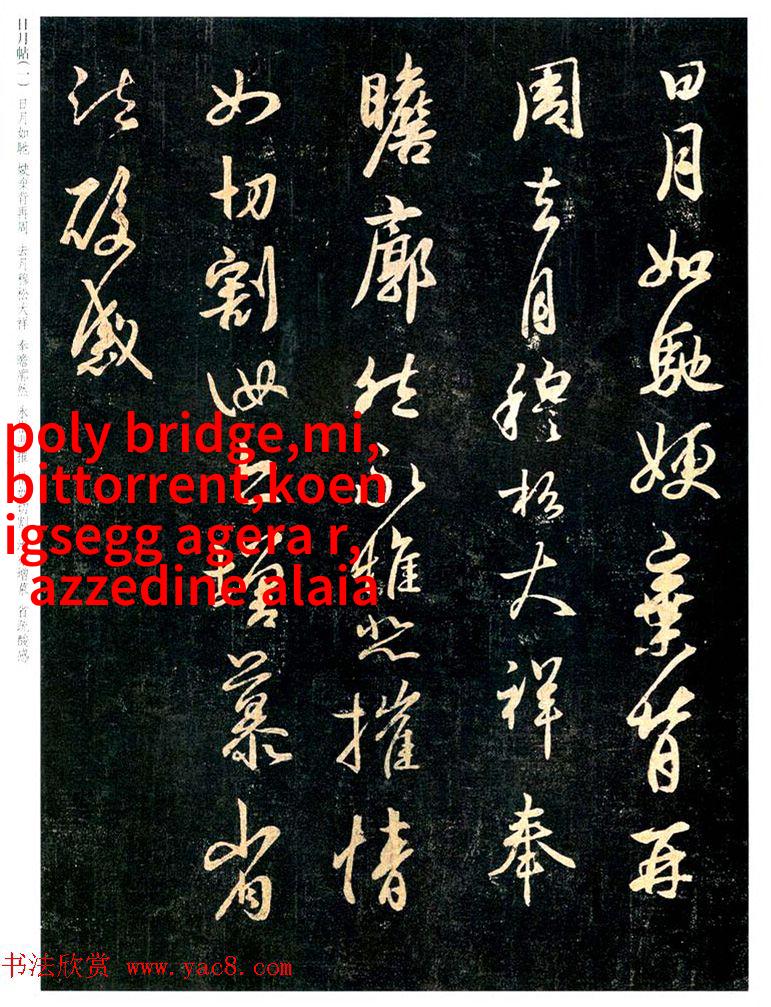 日月如馳嫂棄背再
周去月穆松大祥奉
瞻廓然永惟悲摧情
如切割汝亦增慕省
疏酸感
日月帖(一) 日月如馳 嫂棄背再周 去月穆松大祥 奉瞻廓然 永
切割 增慕 省疏酸感
poly bridge,mi,
bittorrent,koen
igsegg agera r,
azzedine alaia
书法欣赏 www.yac8.com